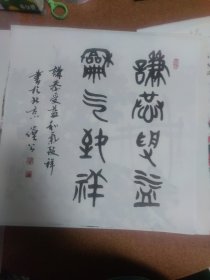 謙恭受益
和氣致祥
謙恭受益和氣致祥
書於北京